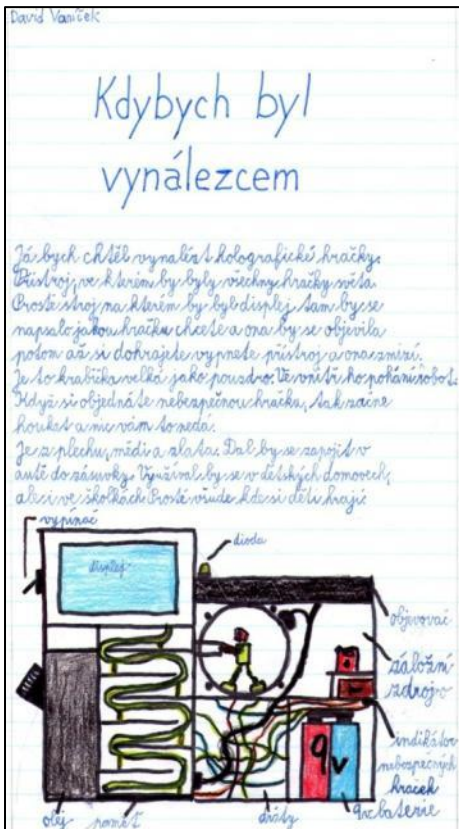 David Vaníček
Kdybych byl
vynálezcem
Já bych chtěl vynalézt holografické hračky.
Přístroj, ve kterém by byly všechny hračky světa.
Prostě stroj na kterém by byl displej tam by se
napsalo jakou hračku chcete a ona by se objevila
potom až si dohrajete vypnete přístroj a ona zmizí.
Je to krabička velká jako pouzdro. Ve vnitř ho pohání robot.
Když si objednáte nebezpečnou hračku, tak začne
houkat a nic vám to nedá.
Je z plechu, mědi a zlata. Dal by se zapojit v
autě do zásuvky. Využíval by se v dětských domovech,
ale i ve školkách Prostě všude kde si děti hrají
vypínač
dioda
displej
objevovač
záložní
zdroj
indikátor
nebezpečných
hraček
9v
olej
paměť
dráty
9v baterie